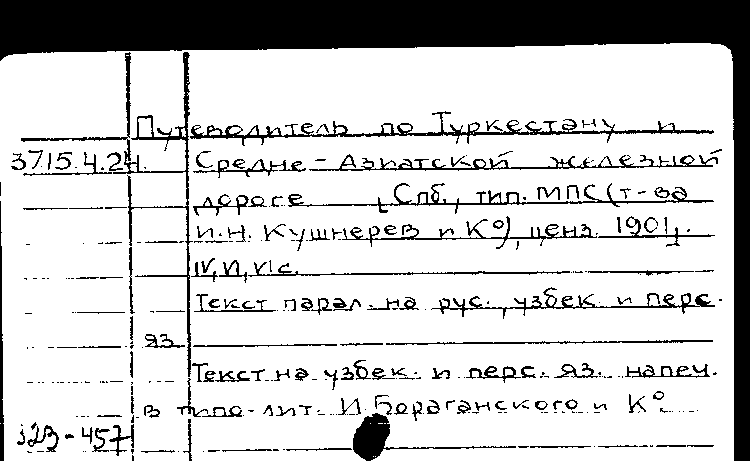 Путеводитель по Туркестану и
3715.4.24. Средне-Азиатской железной
дороге [Спб., тип. МПС (т-ва
И.Н. Кушнерев и К°), ценз. 1901].
IV, VI, VI с.
Текст парал. на рус., узбек. и перс.
яз.
Текст на узбек. и перс. яз. напеч.
в типо-лит. И. Бораганского и К°.
323-457